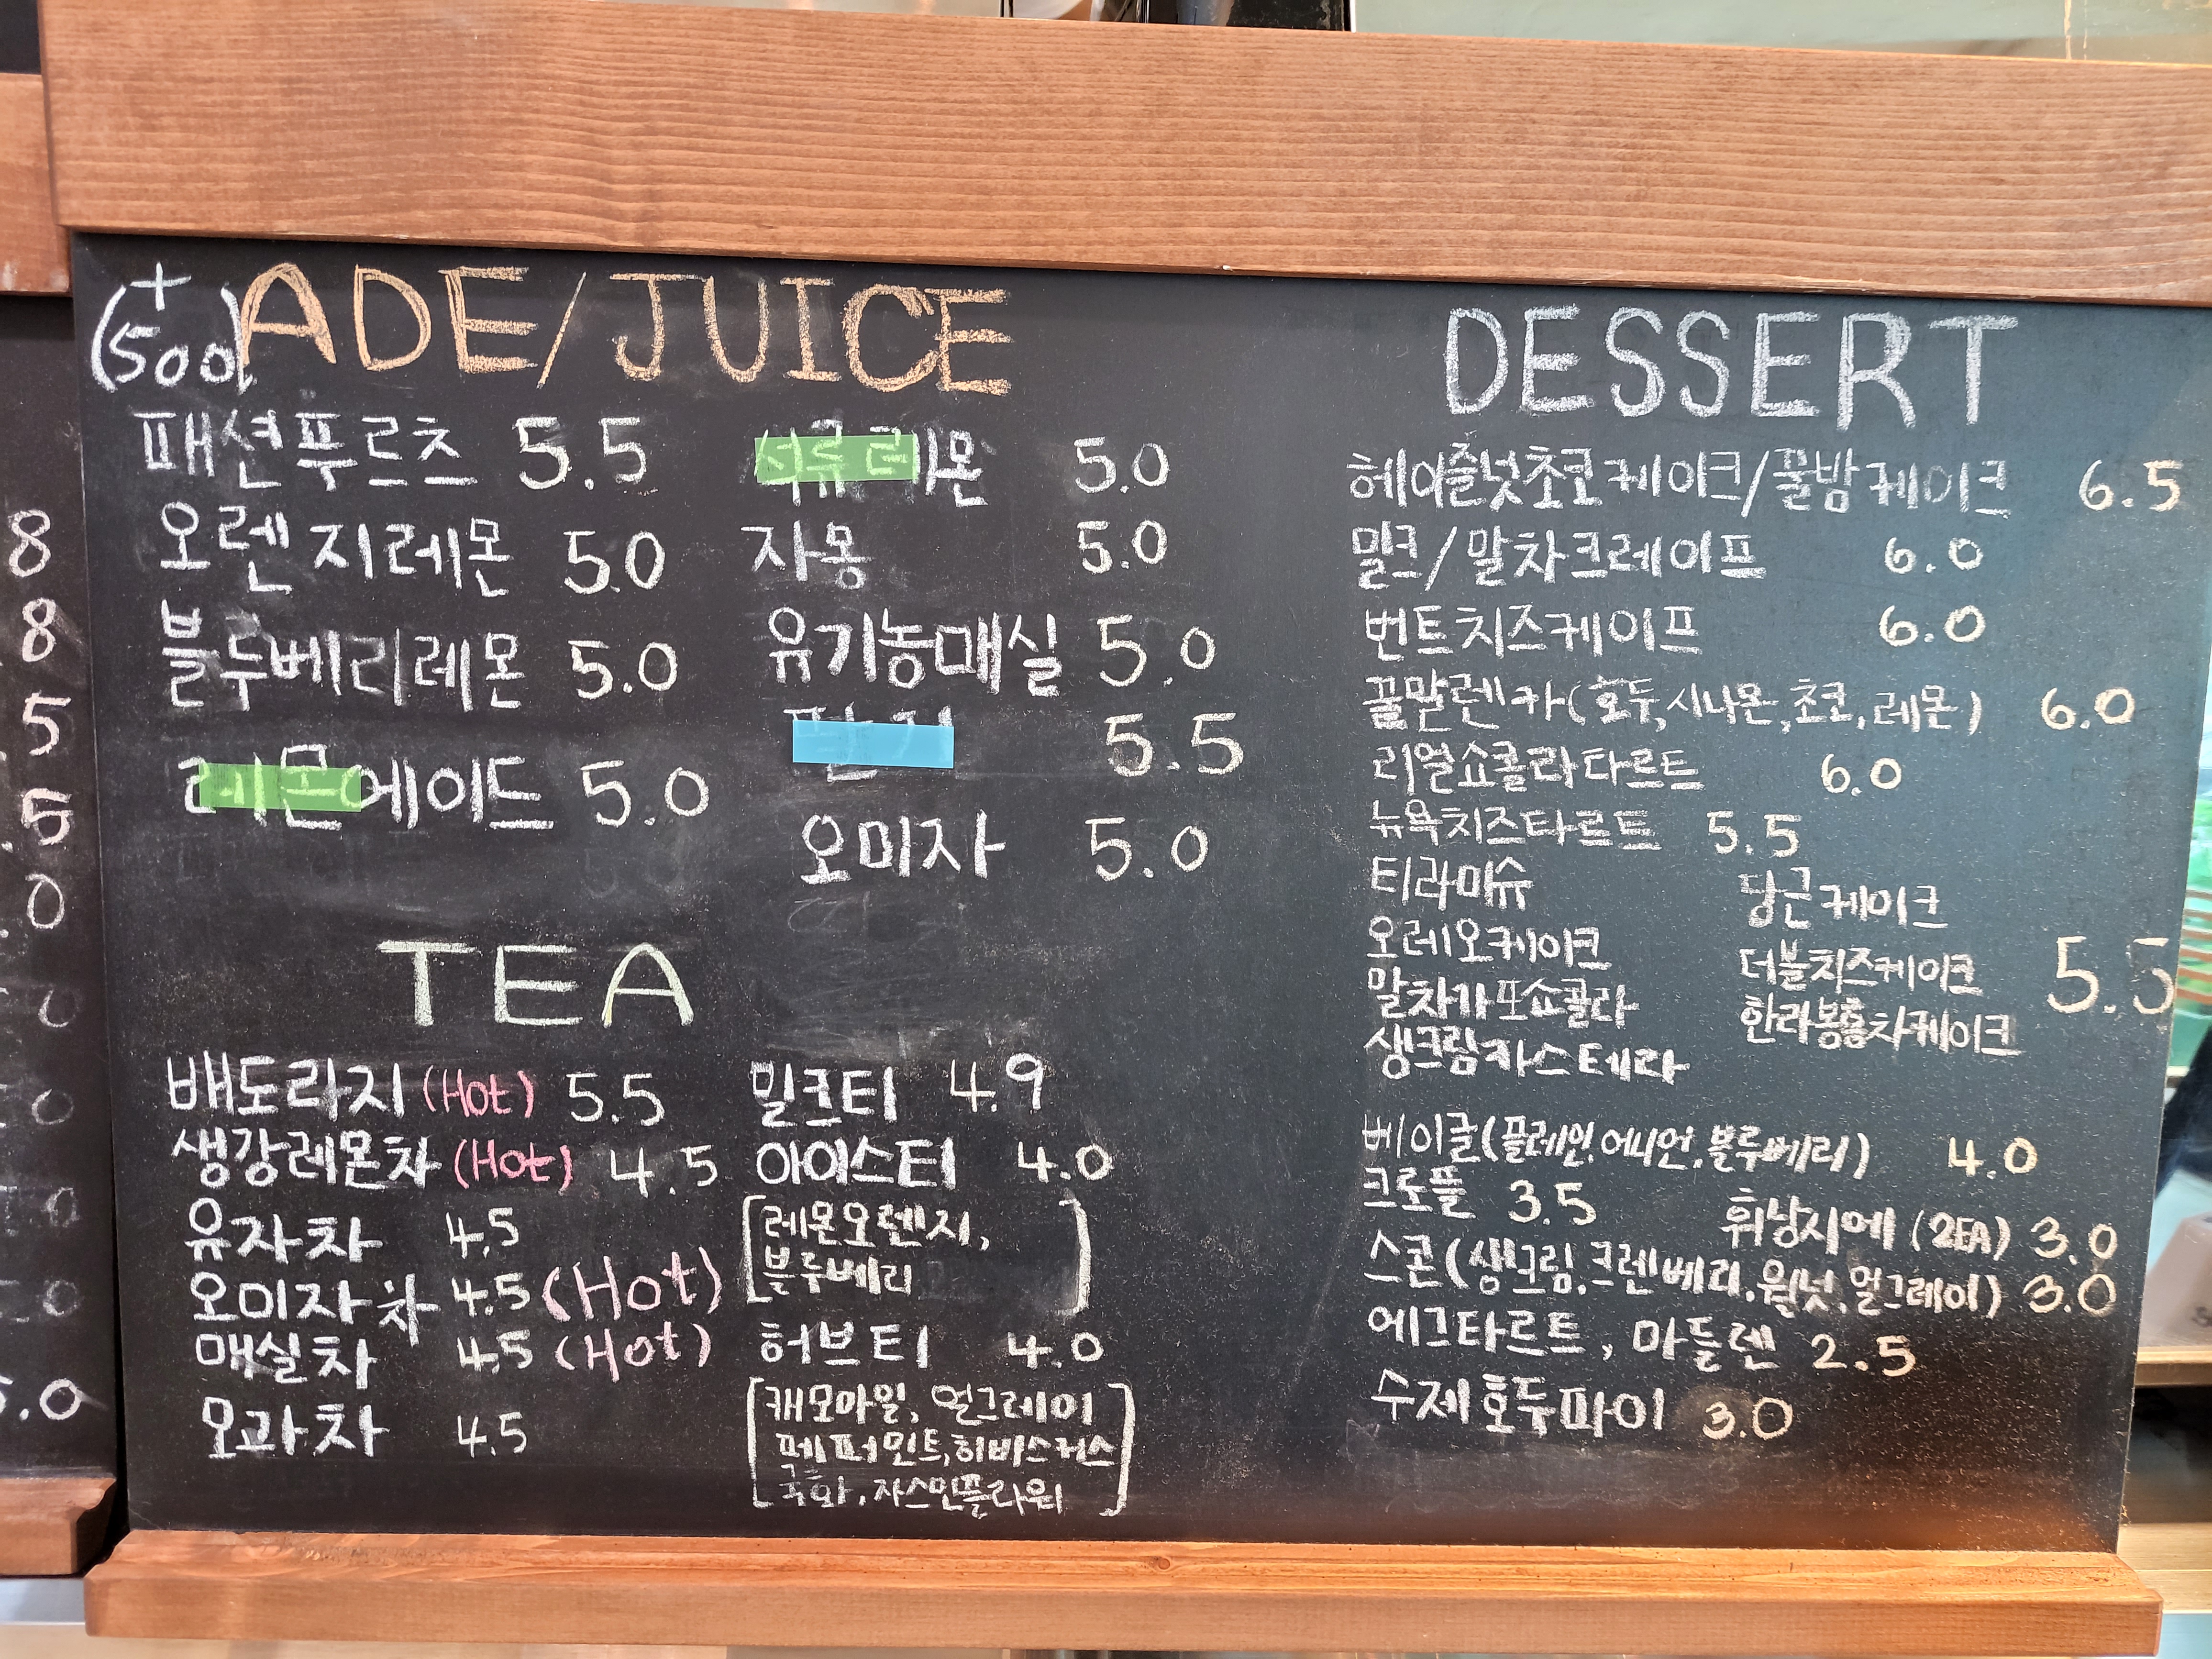 (+500) ADE/JUICE
패션푸르츠 5.5
오렌지레몬 5.0
블루베리레몬 5.0
레몬에이드 5.0
석류레몬 5.0
자몽 5.0
유기농매실 5.0
5.5
오미자 5.0
TEA
배도라지 (Hot) 5.5
생강레몬차 (Hot) 4.5
유자차 4.5
오미자차 4.5 (Hot)
매실차 4.5 (Hot)
모과차 4.5
밀크티 4.9
아이스티 4.0
[레몬오렌지,
블루베리]
허브티 4.0
[캐모마일, 얼그레이
페퍼민트, 히비스커스
국화, 자스민플라워]
DESSERT
헤이즐넛초코케이크/꿀밤케이크 6.5
밀크/말차크레이프 6.0
번트치즈케이프 6.0
꿀말렌카(호두,시나몬,초코,레몬) 6.0
리얼쇼콜라타르트 6.0
뉴욕치즈타르트 5.5
티라미슈 당근케이크
오레오케이크 더블치즈케이크 5.5
말차가또쇼콜라 한라봉홍차케이크
생크림카스테라
베이글(플레인,어니언,블루베리) 4.0
크로플 3.5 휘낭시에 (2EA) 3.0
스콘(생크림,크렌베리,월넛,얼그레이) 3.0
에그타르트, 마들렌 2.5
수제호두파이 3.0
8
8
.5
.5
.0
.0
.0
.0
.0
5.0